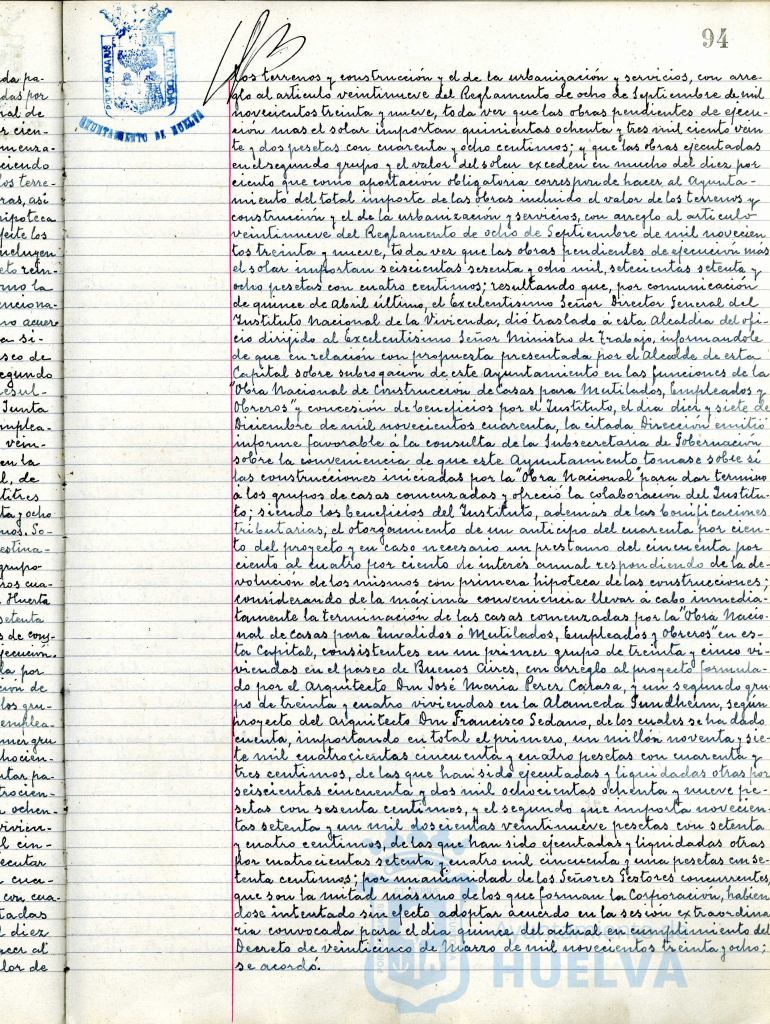 94
AYUNTAMIENTO DE HUELVA
los terrenos y construcción y el de la urbanización y servicios, con arre-
glo al articulo veintinueve del Reglamento de ocho de Septiembre de mil
novecientos treinta y nueve, toda vez que las obras pendientes de ejecu-
ción mas el solar importan quinientas ochenta y tres mil ciento vein
te y dos pesetas con cuarenta y ocho centimos; y que las obras ejecutadas
en el segundo grupo y el valor del solar exceden en mucho del diez por
ciento que como aportación obligatoria corresponde hacer al Ayunta-
miento del total importe de las obras incluido el valor de los terrenos y
construcción y el de la urbanización y servicios, con arreglo al articulo
veintinueve del Reglamento de ocho de Septiembre de mil novecien
tos treinta y nueve, toda vez que las obras pendientes de ejecución más
el solar importan seiscientas sesenta y ocho mil, setecientas setenta y
ocho pesetas con cuatro centimos; resultando que, por comunicación
de quince de Abril último, el Excelentisimo Señor Director General del
Instituto Nacional de la Vivienda, dió traslado á esta Alcaldia del ofi-
cio dirigido al Excelentisimo Señor Ministro de Trabajo, informandole
de que en relación con propuesta presentada por el Alcalde de esta
Capital sobre subrogación de este Ayuntamiento en las funciones de la
"Obra Nacional de Construcción de Casas para Mutilados, Empleados y
Obreros" y concesión de beneficios por el Instituto, el dia diez y siete de
Diciembre de mil novecientos cuarenta, la citada Dirección emitió
informe favorable á la consulta de la Subsecretaria de Gobernación
sobre la conveniencia de que este Ayuntamiento tomase sobre si
las construcciones iniciadas por la "Obra Nacional" para dar termino
á los grupos de casas comenzadas y ofreció la colaboración del Institu-
to; siendo los beneficios del Instituto, además de las bonificaciones
tributarias, el otorgamiento de un anticipo del cuarenta por cien-
to del proyecto y en caso necesario un prestamo del cincuenta por
ciento al cuatro por ciento de interés anual respondiendo de la de-
volución de los mismos con primera hipoteca de las construcciones;
considerando de la máxima conveniencia llevar á cabo inmedia-
tamente la terminación de las casas comenzadas por la "Obra Nacio-
nal de Casas para Invalidos ó Mutilados, Empleados y Obreros" en es-
ta Capital, consistentes en un primer grupo de treinta y cinco vi-
viendas en el paseo de Buenos Aires, con arreglo al proyecto formula-
do por el Arquitecto Don José Maria Perez Carasa, y un segundo gru-
po de treinta y cuatro viviendas en la Alameda Sundheim, según
proyecto del Arquitecto Don Francisco Sedano, de los cuales se ha dado
cuenta, importando en total el primero, un millón noventa y sie-
te mil cuatrocientas cincuenta y cuatro pesetas con cuarenta y
tres centimos, de las que han sido ejecutadas y liquidadas otras por
seiscientas cincuenta y dos mil ochocientas ochenta y nueve pe-
setas con sesenta centimos, y el segundo que importa novecien-
tas setenta y un mil doscientas veintinueve pesetas con setenta
y cuatro centimos, de las que han sido ejecutadas y liquidadas otras
por cuatrocientas setenta y cuatro mil cincuenta y una pesetas con se-
tenta centimos; por unanimidad de los Señores Gestores concurrentes,
que son la mitad más uno de los que forman la Corporación, habien
dose intentado sin efecto adoptar acuerdo en la sesión extraordina
ria convocada para el dia quince del actual en cumplimiento del
Decreto de veinticinco de Marzo de mil novecientos treinta y ocho;
se acordó.
HUELVA